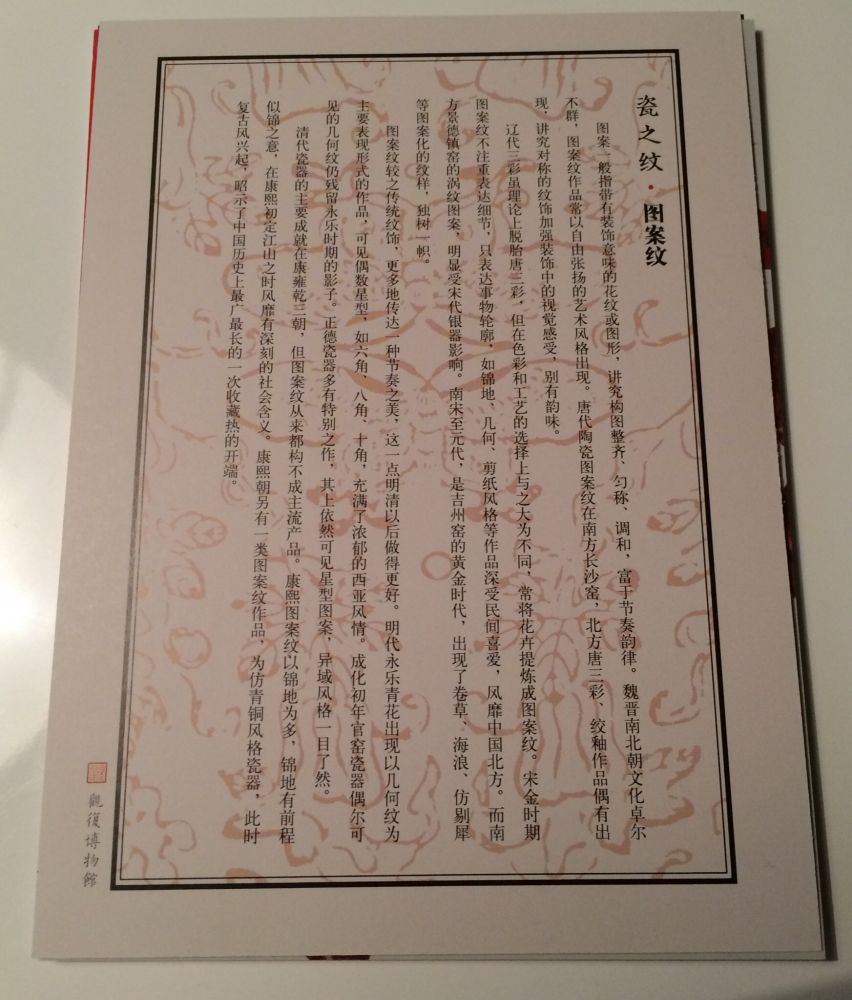 瓷之纹·图案纹
图案一般指带有装饰意味的花纹或图形，讲究构图整齐、匀称、调和，富于节奏韵律。魏晋南北朝文化卓尔
不群，图案纹作品常以自由张扬的艺术风格出现。唐代陶瓷图案纹在南方长沙窑，北方唐三彩、绞釉作品偶有出
现，讲究对称的纹饰加强装饰中的视觉感受，别有韵味。
辽代三彩虽理论上脱胎唐三彩，但在色彩和工艺的选择上与之大为不同，常将花卉提炼成图案纹。宋金时期
图案纹不注重表达细节，只表达事物轮廓，如锦地、几何、剪纸风格等作品深受民间喜爱，风靡中国北方。而南
方景德镇窑的涡纹图案，明显受宋代银器影响。南宋至元代，是吉州窑的黄金时代，出现了卷草、海浪、仿剔犀
等图案化的纹样，独树一帜。
图案纹较之传统纹饰，更多地传达一种节奏之美，这一点明清以后做得更好。明代永乐青花出现以几何纹为
主要表现形式的作品，可见偶数星型，如六角、八角、十角，充满了浓郁的西亚风情。成化初年官窑瓷器偶尔可
见的几何纹仍残留永乐时期的影子。正德瓷器多有特别之作，其上依然可见星型图案，异域风格一目了然。
清代瓷器的主要成就在康雍乾三朝，但图案纹从来都构不成主流产品。康熙图案纹以锦地为多，锦地有前程
似锦之意，在康熙初定江山之时风靡有深刻的社会含义。康熙朝另有一类图案纹作品，为仿青铜风格瓷器，此时
复古风兴起，昭示了中国历史上最广最长的一次收藏热的开端。
觀復博物館